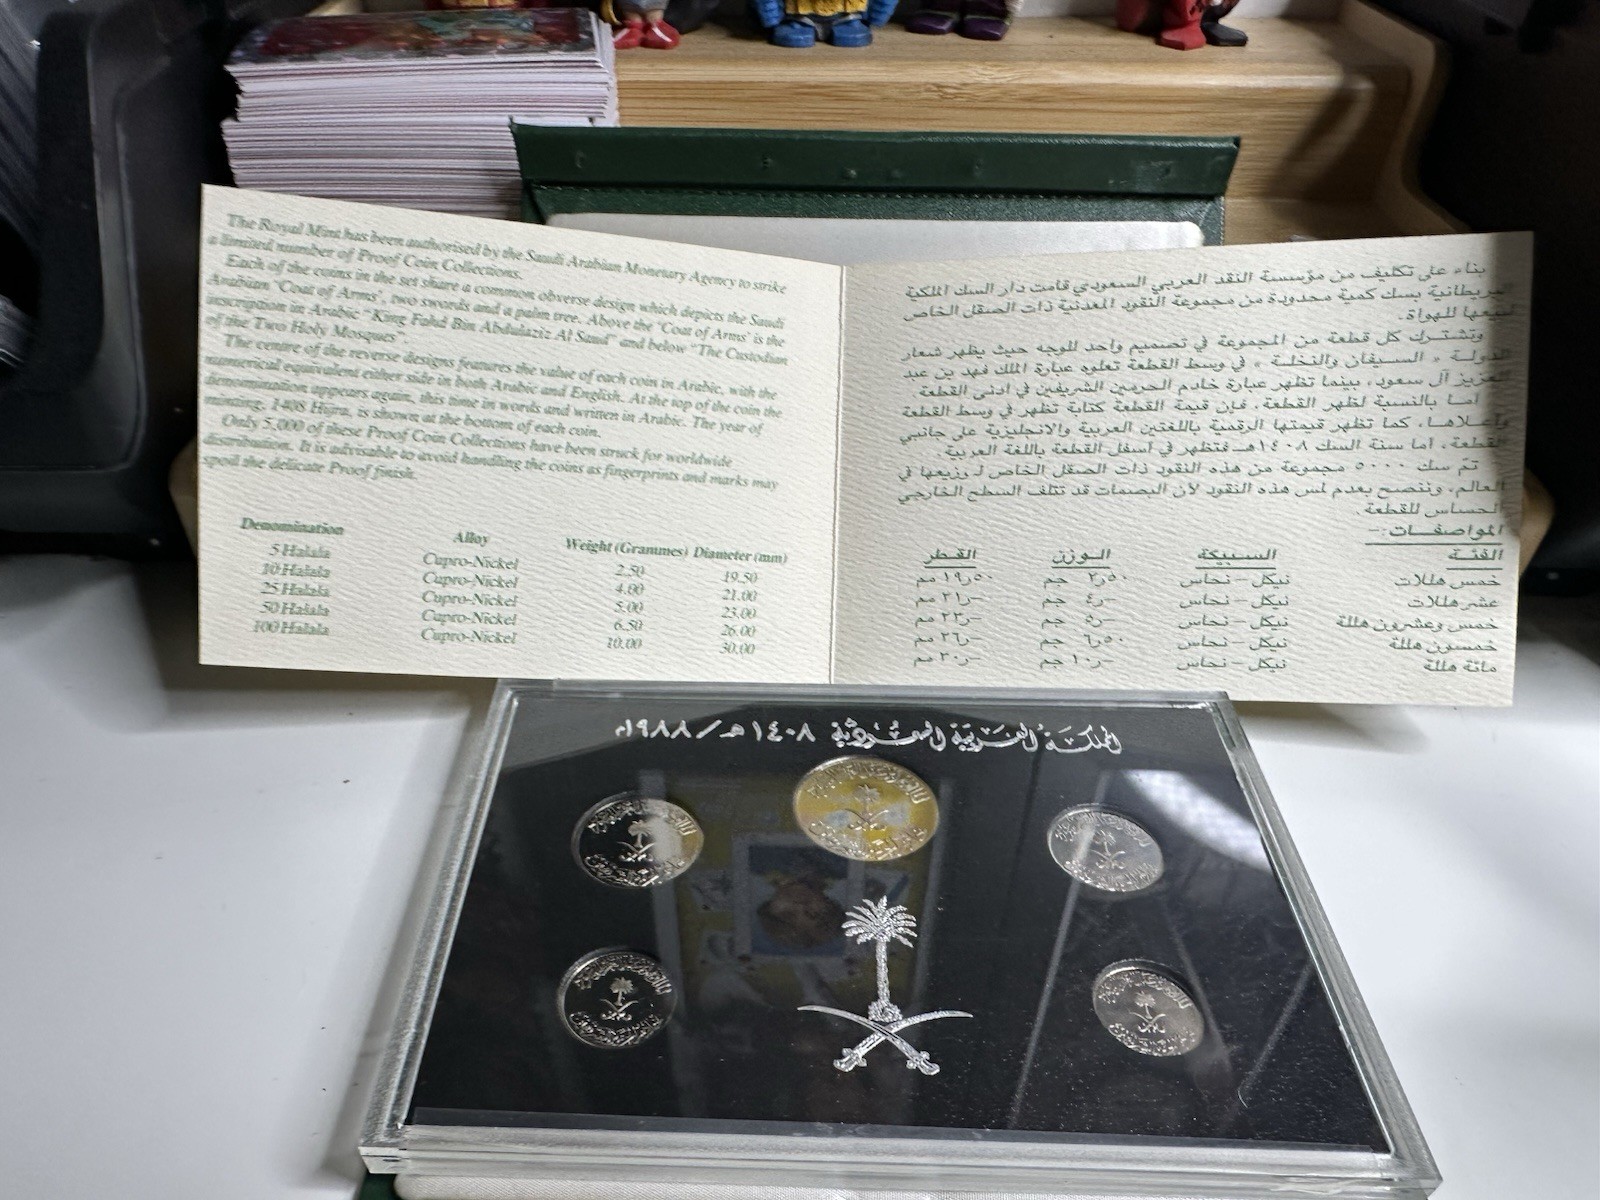 The Royal Mint has been authorised by the Saudi Arabian Monetary Agency to strike
a limited number of Proof Coin Collections.
Each of the coins in the set share a common obverse design which depicts the Saudi
Arabian 'Coat of Arms', two swords and a palm tree. Above the 'Coat of Arms' is the
inscription in Arabic "King Fahd Bin Abdulaziz Al Saud" and below "The Custodian
of the Two Holy Mosques".
The centre of the reverse designs features the value of each coin in Arabic, with the
numerical equivalent either side in both Arabic and English. At the top of the coin the
denomination appears again, this time in words and written in Arabic. The year of
minting, 1408 Hijra, is shown at the bottom of each coin.
Only 5,000 of these Proof Coin Collections have been struck for worldwide
distribution. It is advisable to avoid handling the coins as fingerprints and marks may
spoil the delicate Proof finish.
Denomination Alloy Weight (Grammes) Diameter (mm)
5 Halala Cupro-Nickel 2.50 19.50
10 Halala Cupro-Nickel 4.00 21.00
25 Halala Cupro-Nickel 5.00 23.00
50 Halala Cupro-Nickel 6.50 26.00
100 Halala Cupro-Nickel 10.00 30.00
بناء على تكليف من مؤسسة النقد العربي السعودي قامت دار السك الملكية
البريطانية بسك كمية محدودة من مجموعة النقود المعدنية ذات الصقل الخاص
لبيعها للهواة.
وتشترك كل قطعة من المجموعة في تصميم واحد للوجه حيث يظهر شعار
الدولة « السيفان والنخلة » في وسط القطعة تعلوه عبارة الملك فهد بن عبد
العزيز آل سعود، بينما تظهر عبارة خادم الحرمين الشريفين في ادنى القطعة
اما بالنسبة لظهر القطعة، فإن قيمة القطعة كتابة تظهر في وسط القطعة
وأعلاها، كما تظهر قيمتها الرقمية باللغتين العربية والانجليزية على جانبي
القطعة، اما سنة السك ١٤٠٨هـ فتظهر في أسفل القطعة باللغة العربية.
تم سك ٥٠٠٠ مجموعة من هذه النقود ذات الصقل الخاص لتوزيعها في
العالم، وننصح بعدم لمس هذه النقود لأن البصمات قد تتلف السطح الخارجي
الحساس للقطعة.
المواصفات:-
الفئة السبيكة الوزن القطر
خمس هللات نيكل - نحاس ٢٫٥٠ جم ١٩٫٥٠ مم
عشر هللات نيكل - نحاس ٤٫- جم ٢١٫- مم
خمس وعشرون هللة نيكل - نحاس ٥٫- جم ٢٣٫- مم
خمسون هللة نيكل - نحاس ٦٫٥٠ جم ٢٦٫- مم
مائة هللة نيكل - نحاس ١٠٫- جم ٣٠٫- مم
المملكة العربية السعودية ١٤٠٨هـ/١٩٨٨م